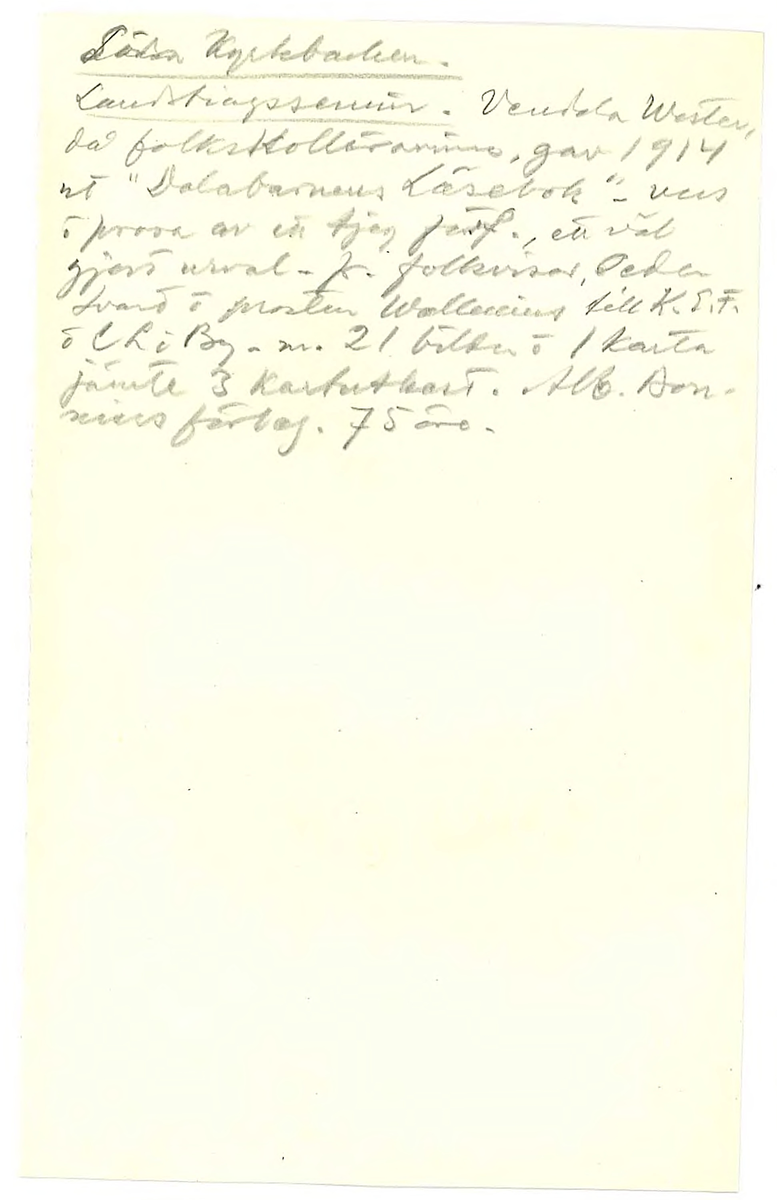 Kyrkbacken.
Landstingssemin. Vendela Wester,
då folkskollärarinna, gav 1914
ut "Dalabarnens Läsebok" - vers
o prosa av ett tjog förf., ett väl
gjort urval - fr. folkvisor, Peder
Svard o prosten Wallenius till K.E.F.
o CL i By - m. 21 bilder o 1 karta
jämte 3 kartutkast. Alb. Bon-
niers förlag. 75 öre.